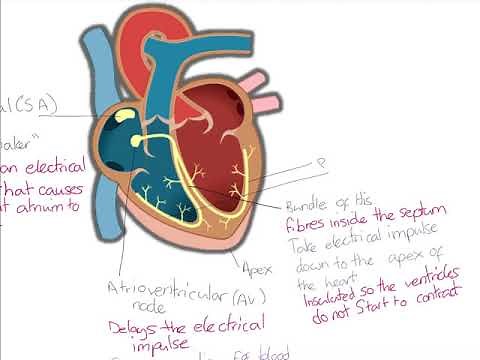 al (SA)
aker"
an electrical
that causes
t atrium to
P
Bundle of His
fibres inside the septum
Take electrical impulse
down to the apex of
the heart
Insulated so the ventricles
do not Start to contract
Apex
Atrioventricular (AV)
node
Delays the electrical
impulse
for blood